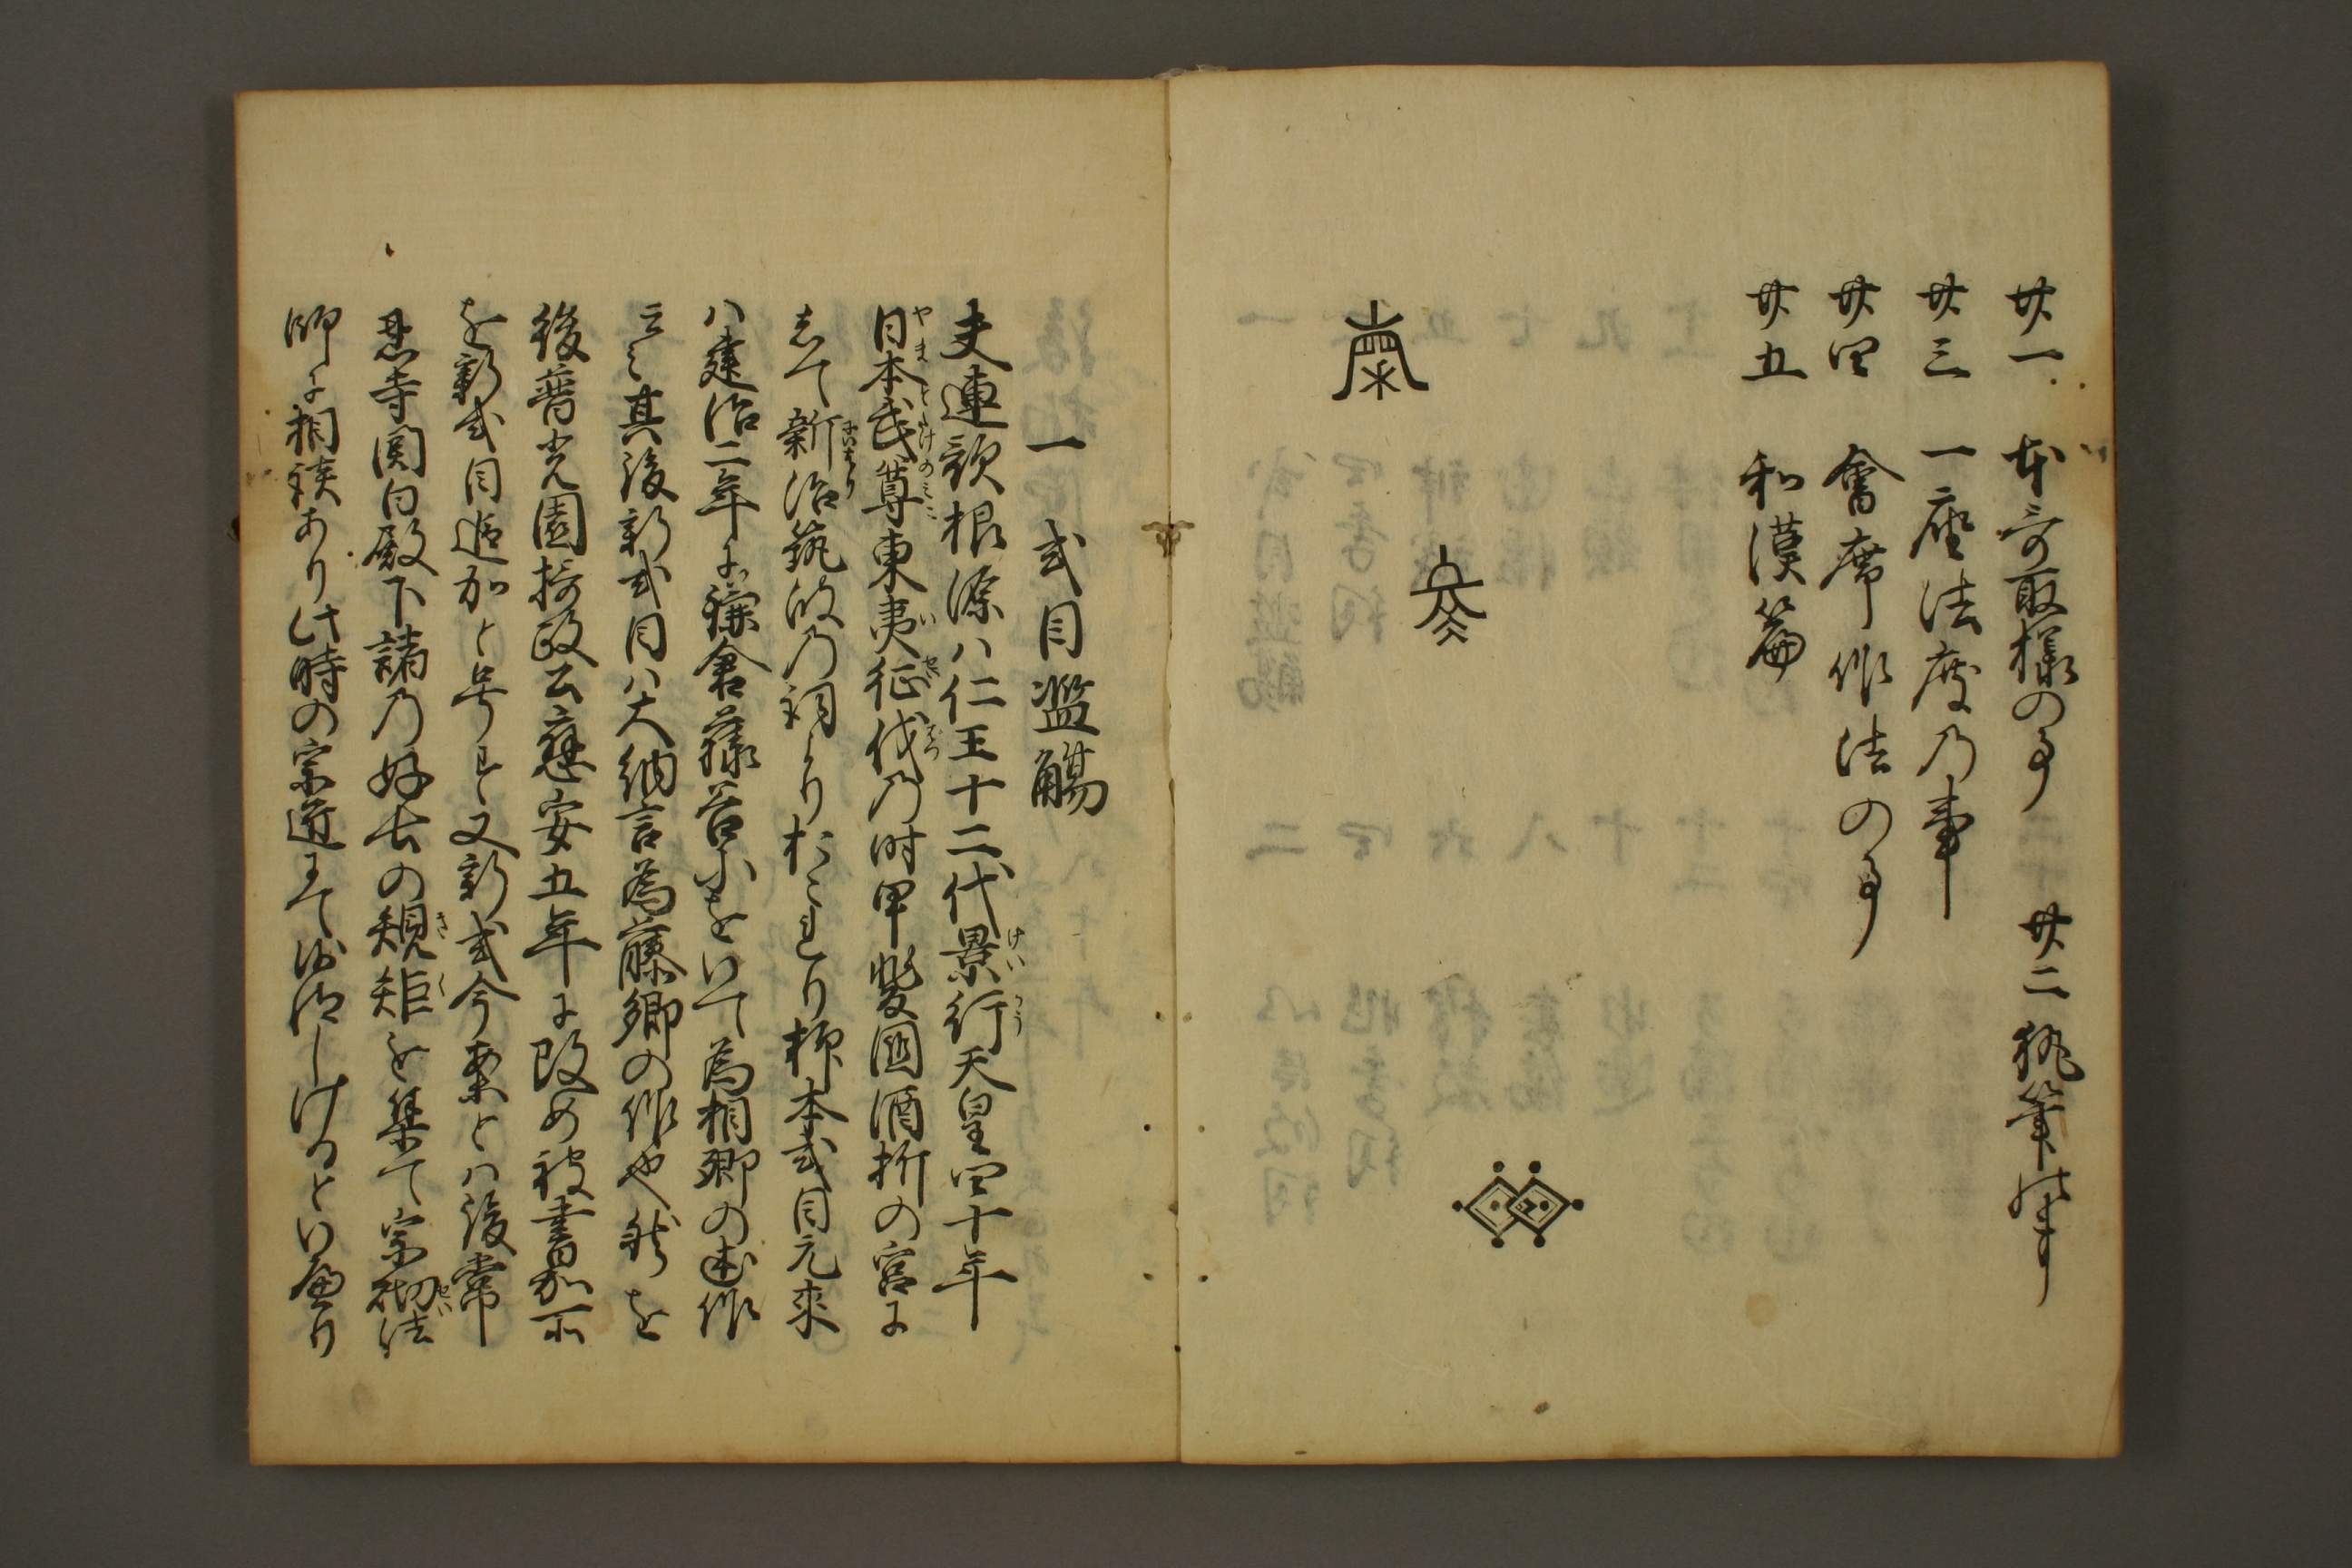 廿一　本哥取様の事　廿二　執筆の事
廿三　一座法度乃事
廿四　會席作法の事
廿五　和漢篇
一　式目濫觴
夫連歌根源ハ仁王十二代景行天皇四十年
日本武尊東夷征伐乃时甲斐國酒折の宮に
して新治筑波乃詞よりおこれり抑本式目元来
ハ建治二年に鎌倉藤谷にをいて為相卿の述作
云々其後新式目ハ大納言為藤卿の作也然を
後普光園摂政公應安五年に改め被書加所
を新式目追加と号す又新式今案とハ後常
恩寺関白殿下諸乃好士の規矩を集て宗砌法
師に相談あり此時の宗匠にて御沙汰しけるといへり